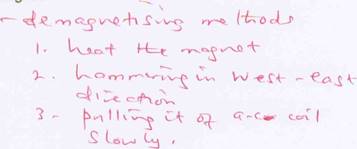 - demagnetising methods
1. heat the magnet
2. hammring in west-east
direction
3- pulling it of a-c coil
slowly.